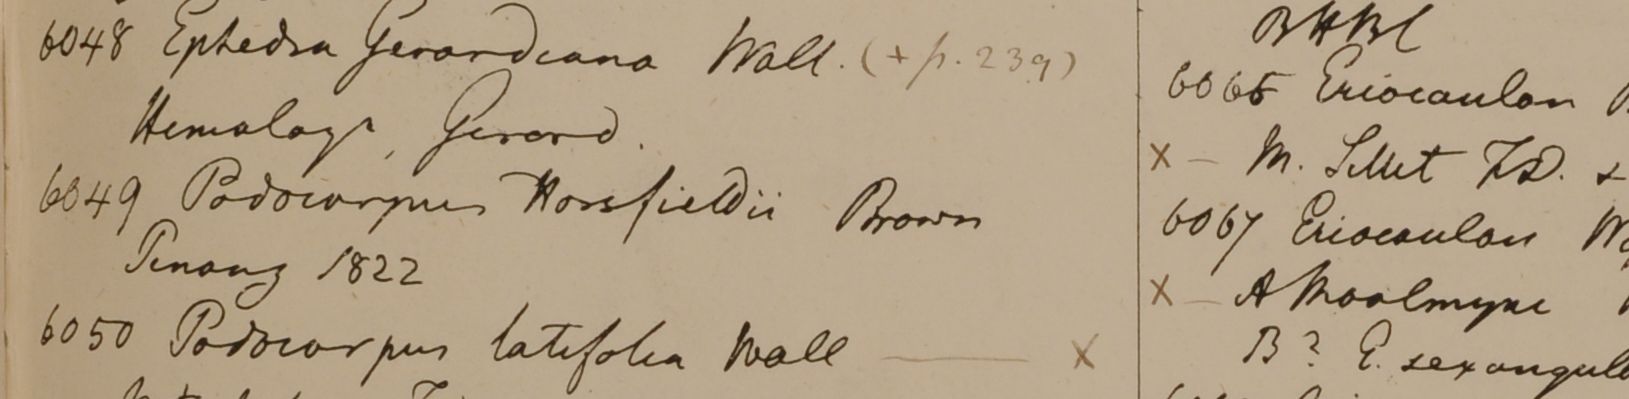 6048 Ephedra Gerardiana Wall. (+ p. 239)
Hemalaya, Gerard.
6049 Podocarpus Horsfieldii Brown
Pinang 1822
6050 Podocarpus latifolia Wall — x
BHBC
6065 Eriocaulon
x — M. Sillet FD. &
6067 Eriocaulon W
x — A Moalmyne
B? E. sexangul